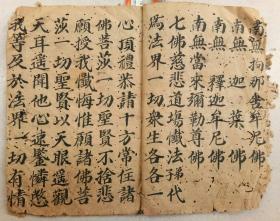 南無拘那含牟尼佛
南無迦葉佛
南無釋迦牟尼佛
南無當來彌勒尊佛
七佛慈悲道場懺法我代
為法界一切眾生各各一
心頂禮恭請十方常住諸
佛菩薩一切聖賢不捨悲
願授我懺悔惟願諸佛菩
薩一切聖賢以天眼遥觀
天耳遥聞他心速鑒憐愍
我等及於法界一切有情